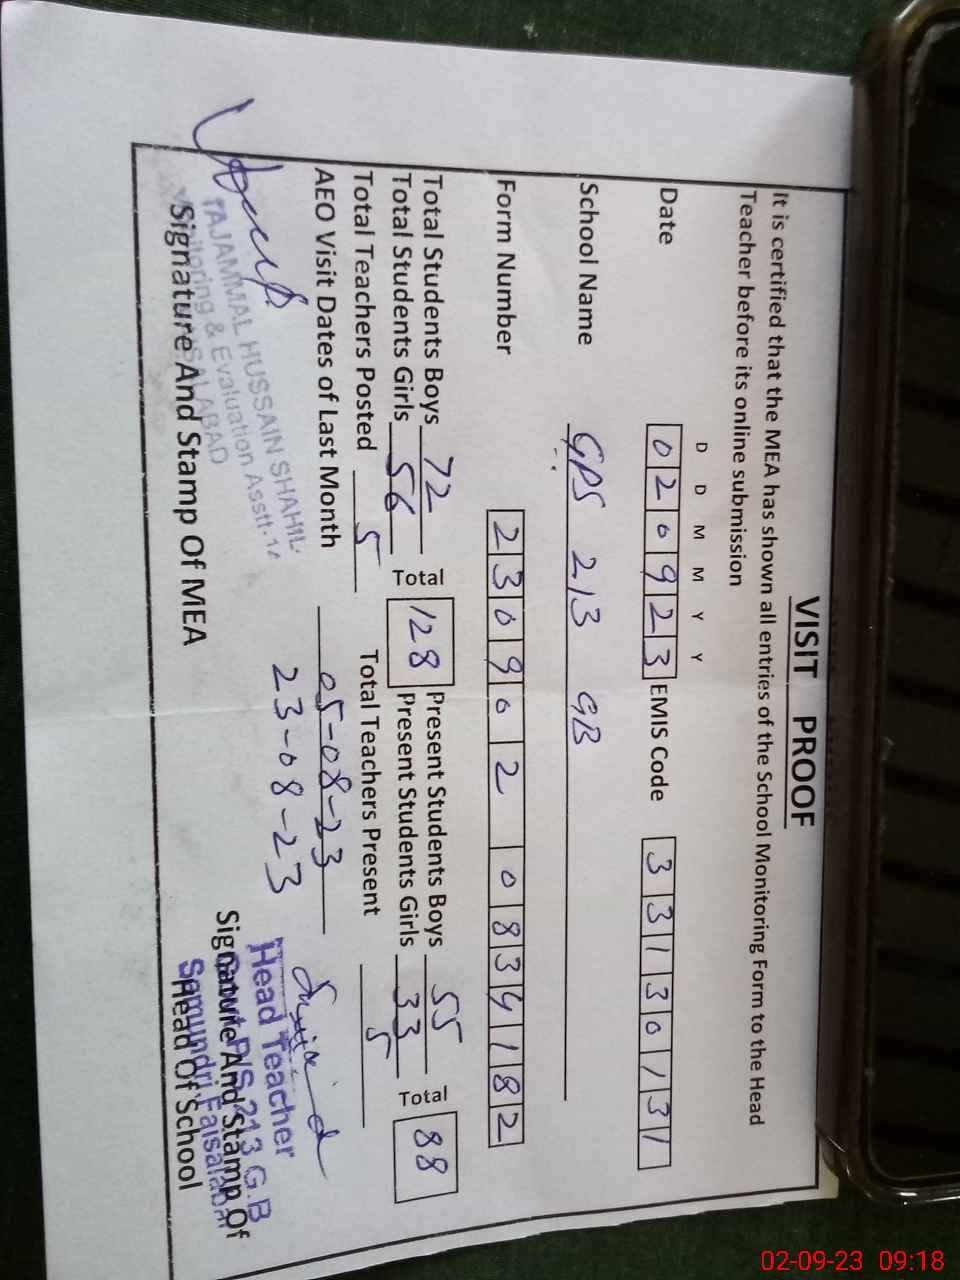 VISIT PROOF
It is certified that the MEA has shown all entries of the School Monitoring Form to the Head
Teacher before its online submission
D D M M Y Y
Date 020923 EMIS Code 33130131
School Name GPS 213 GB
Form Number 230902 0834182
Total Students Boys 72 Present Students Boys 55
Total Students Girls 56 Total 128 Present Students Girls 33 Total 88
Total Teachers Posted 5 Total Teachers Present 5
AEO Visit Dates of Last Month 05-08-23
23-08-23
TAJAMMAL HUSSAIN SHAHI
Monitoring & Evaluation Asstt-
FAISALABAD
Signature And Stamp Of MEA
Head Teacher
Govt P/S 213 G.B
Samundri, Faisalabad
Signature And Stamp Of
Head Of School
02-09-23 09:18